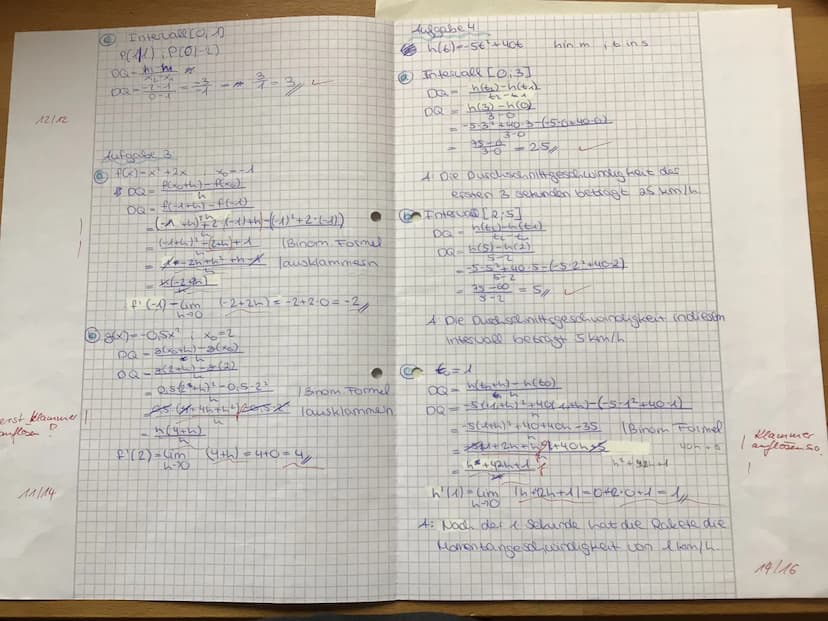 c) Intervall [0;1]
P(1|1) ; P(0|-2)
DQ =
DQ = -2-1/0-1 = -3/-1 = 3/1 = 3
12/12
Aufgabe 3
a) f(x) = x² + 2x x₀ = -1
DQ = f(x₀+h) - f(x₀)/h
DQ = f(-1+h) - f(-1)/h
= (-1+h)² + 2·(-1+h) - (-1)² + 2·(-1))/h
= (-1+h)² - 2+h) + 1/h | Binom. Formel
= 1 - 2h + h² + h - 1/h | ausklammern
= h(-2+2h)/h
f'(-1) = lim h→0 (-2+2h) = -2+2·0 = -2
b) g(x) = -0,5x² ; x₀ = 2
DQ = g(x₀+h) - g(x₀)/h
DQ = g(2+h) - g(2)/h
= 0,5(2+h)² - 0,5·2²/h | Binom. Formel
| ausklammern
erst Klammer
auflösen!
= h(4+h)/h
f'(2) = lim h→0 (4+h) = 4+0 = 4
11/14
Aufgabe 4
h(t) = -5t² + 40t h in m ; t in s
a) Intervall [0;3]
DQ = h(t₂) - h(t₁)/t₂ - t₁
DQ = h(3) - h(0)/3-0
= -5·3² + 40·3 - (-5·0 + 40·0)/3-0
= 75-0/3-0 = 25
A: Die Durchschnittsgeschwindigkeit der
ersten 3 sekunden beträgt 25 km/h.
b) Intervall [2;5]
DQ = h(t₂) - h(t₁)
DQ = h(5) - h(2)/5-2
= -5·5² + 40·5 - (-5·2² + 40·2)/5-2
= 75-60/5-2 = 5
A: Die Durchschnittsgeschwindigkeit in diesem
Intervall beträgt 5 km/h
c) t₀ = 1
DQ = h(t₀+h) - h(t₀)/h
DQ = -5(1+h)² + 40(1+h) - (-5·1² + 40·1)/h
= -5(1+h)² + 40 + 40h - 35/h | Binom. Formel
Klammer
auflösen so
= h² + 42h + 1/h h² + 42h + 1
h'(1) = lim h→0 (h+2h+1) = 0+2·0+1 = 1
A: Nach der 1 Sekunde hat die Rakete die
Momentangeschwindigkeit von 1 km/h.
14/16